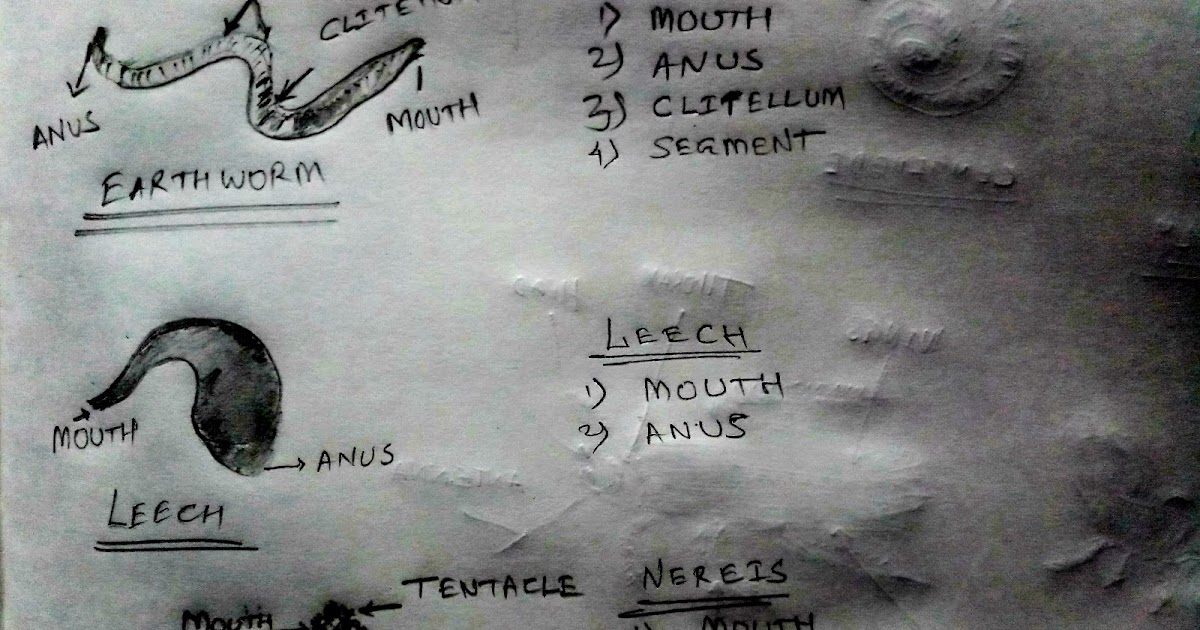 CLITELLUM
ANUS
MOUTH
EARTHWORM
1) MOUTH
2) ANUS
3) CLITELLUM
4) SEGMENT
MOUTH
ANUS
LEECH
LEECH
1) MOUTH
2) ANUS
TENTACLE
MOUTH
NEREIS
1) MOUTH